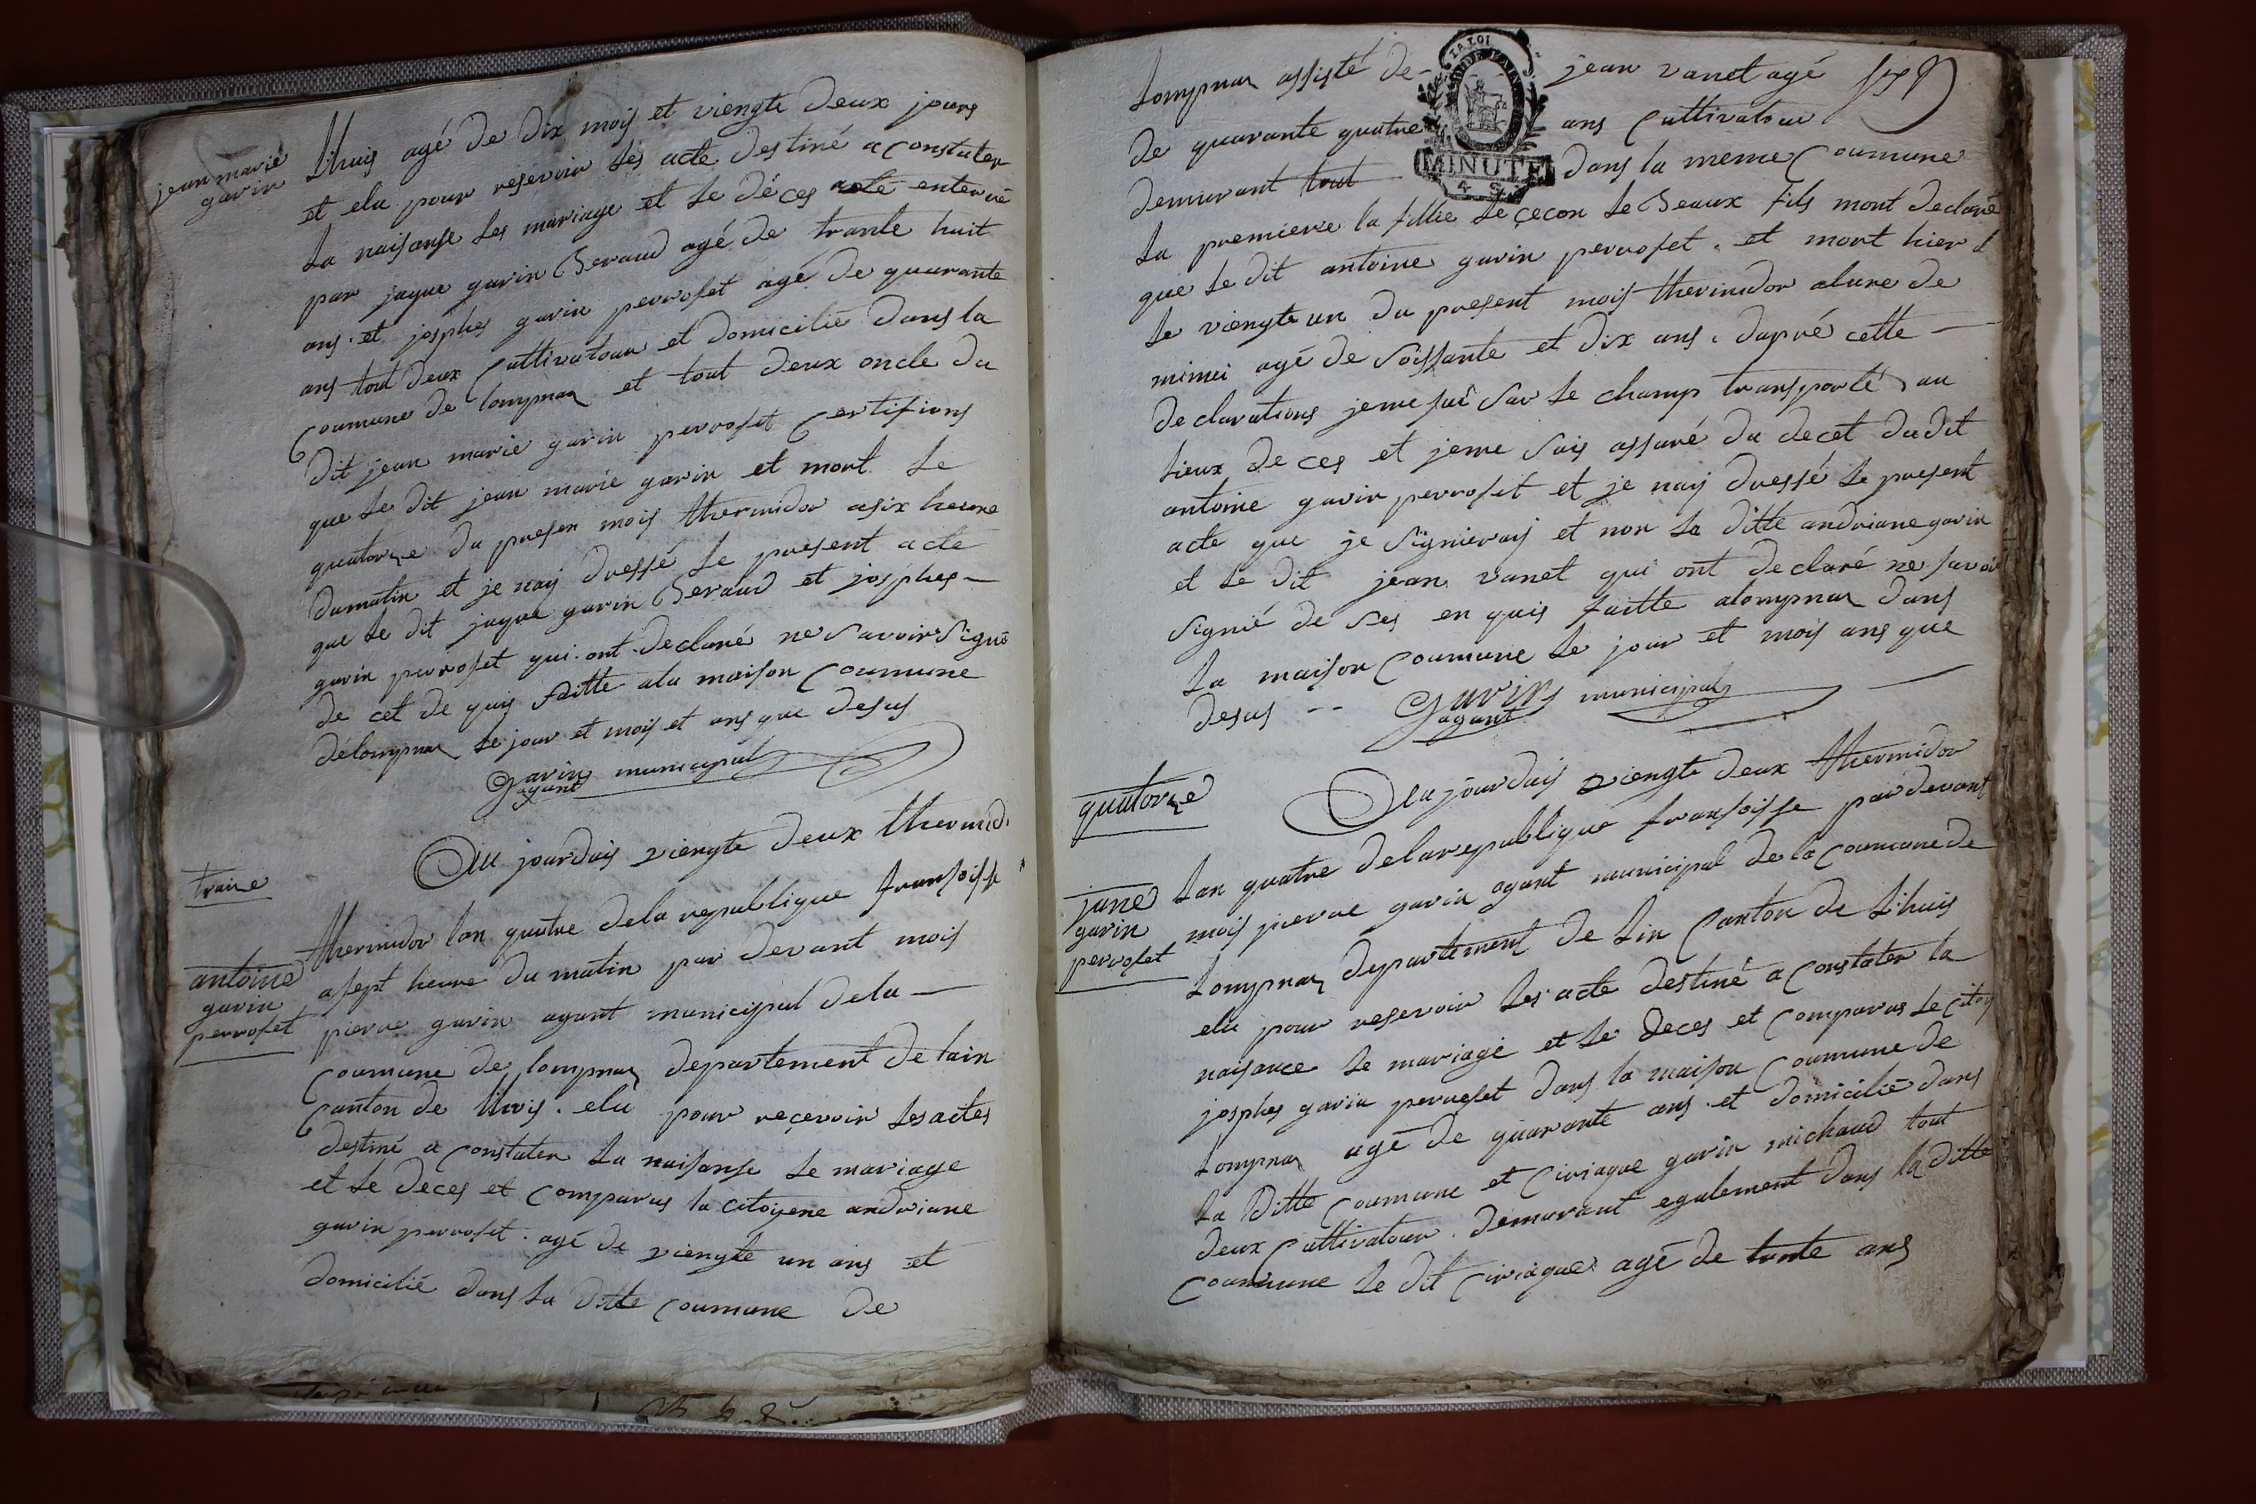 jean marie
gavin
Lhuis agé de dix mois et viengte deux jours
et elu pour resevoir les acte destiné a constater
La naisanse Les mariage et Le déces acte enterié
par jaque gavin Beraud agé de trante huit
ans et josphes gavin perroset agé de quarante
ans tout deux Cultivatour et domicilié dans la
Coumune de lompnaz et tout deux oncle du
dit jean marie gavin perroset Certifions
que Le dit jean marié gavin et mort Le
quatorze du presen mois thermidor asix heure
dumatin et je naij dressé Le present acte
que Le dit jaque gavin Beraud et josphes
gavin perroset qui ont declaré ne Savoir Signé
de cet de quis faitte ala maison Coumune
délompnaz Le jour et mois et ans que desus
Gavin municipal
agant
traize
Au jourduis viengte deux thermid
antoine
gavin
perroset
thermidor lan quatre dela republique fransoisse
asept heure du matin par devant mois
pierre gavin agant municipal dela
Coumune de lompnaz departement de lain
Canton de Lhuis elu pour reçevoir Les actes
destiné a Constater La naisanse Le mariage
et Le deces et Comparus la Citoyene andriane
gavin perroset agé de viengte un ans et
domicilié dans La ditte Coumune de
Lompnaz assisté de jean vanet agé
de quarante quatre ans Cultivatour
LA LOI
MINUTE
demurant tout dans la meme Coumune
La premiere la fillie Le çecon Le Beaux fils mont declaré
que Le dit antoine gavin perroset et mort hier
Le viengte un du present mois thermidor alure de
minui agé de Soissante et dix ans daprè cette
declarations jeme sui Sur Le champ transporté au
Lieux de ces et jeme Suis assuré du decet dudit
antoine gavin perroset et je naij dressé Le present
acte que je Signieraij et non La ditte andriane gavin
et Le dit jean vanet qui ont declaré ne savoir
Signié de Ses en quis faitte alompnaz dans
La maison Coumune Le jour et mois ans que
desus Gavin municipal
agant
quatorze
Au jourduis viengte deux thermidor
jane
gavin
perroset
Lan quatre delarepublique fransoisse par devant
mois pierre gavin agant municipal de la Coumune de
Lompnaz departement de Lin Canton de Lihuis
elu pour resevoir Les acte destiné a Constater la
naisance Le mariage et Le deces et Comparus Le Citoy
josphes gavin perroset dans la maison Coumune de
Lompnaz agé de quarante ans et domicilié dans
La ditte Coumune et Ciriaque gavin michaud tout
deux Cultivatour demurant egalement dans la ditte
Coumune Le dit Ciriaque agé de trente ans